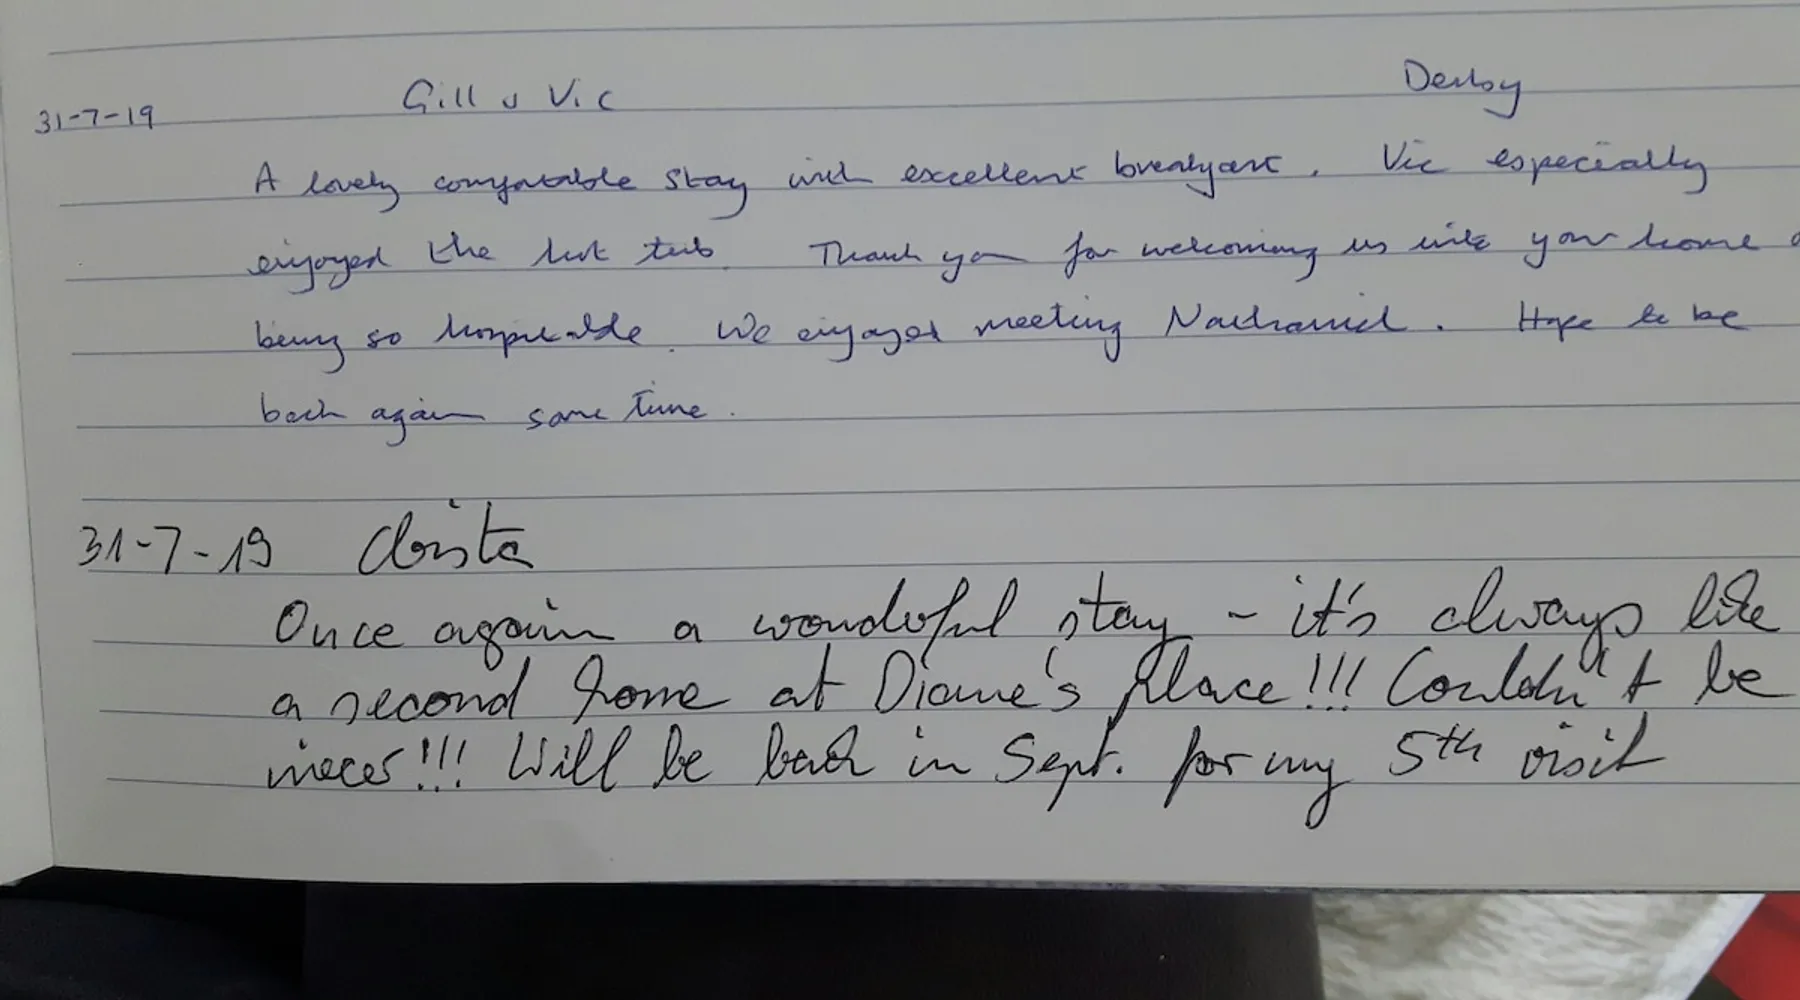 31-7-19 Gill & Vic Derby
A lovely comfortable stay with excellent breakfast. Vic especially
enjoyed the hot tub. Thank you for welcoming us into your home &
being so hospitable. We enjoyed meeting Nathaniel. Hope to be
back again some time.
31-7-19 Christa
Once again a wonderful stay - it's always like
a second home at Diane's place!!! Couldn't be
nicer!!! Will be back in Sept. for my 5th visit